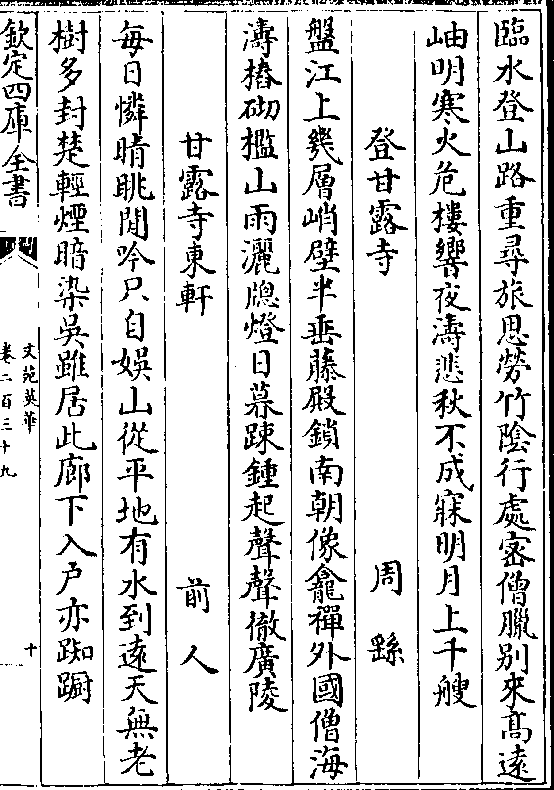 臨水登山路重尋旅思勞竹陰行處密僧臘别來髙遠
岫明寒火危樓響夜濤悲秋不成寐明月上千艘
登甘露寺　周繇
盤江上幾層峭壁半垂藤殿鎖南朝像龕禪外國僧海
濤摏砌檻山雨灑牕燈日暮踈鍾起聲聲徹廣陵
甘露寺東軒　前人
每日憐晴眺閒吟只自娛山從平地有水到逺天無老
樹多封楚輕煙暗染吳雖居此廊下入户亦踟蹰
欽定四庫全書
文苑英華
卷二百三十九
十